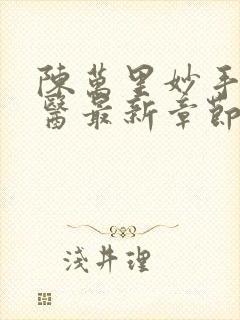 陳萬里妙手
醫最新章節
淺井理